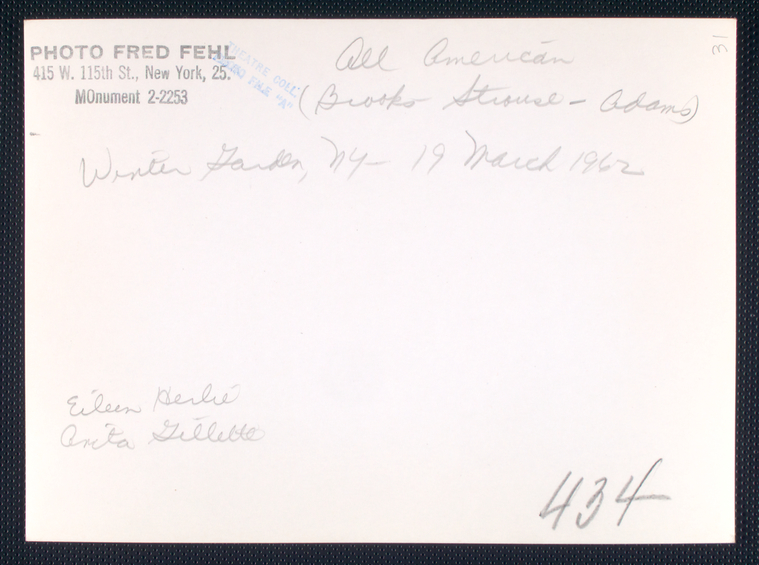 PHOTO FRED FEHL
415 W. 115th St., New York, 25.
MOnument 2-2253
THEATRE COLL.
FILE "A"
31
All American
(Brooks Strouse - Adams)
Winter Garden, NY - 19 March 1962
Eileen Herlie
Anita Gillette
434